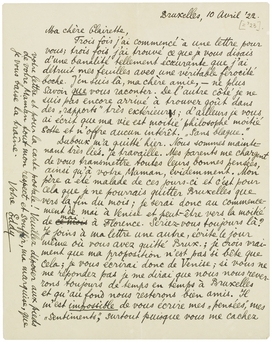 Bruxelles, 10 Avril '22.
Ma chère Clairette,
Trois fois j'ai commencé à une lettre pour
vous; trois fois j'ai trouvé ce que je vous disais
d'une banalité tellement écœurante que j'ai
détruit mes feuilles avec une véritable férocité
boche. J'en suis là, ma chère amie, - ne plus
savoir que vous raconter. De l'autre côté je ne
suis pas encore arrivé à trouver goût dans
les "rapports" très extérieurs; d'ailleurs je vous
ai écrit que ma vie est ma philosophie moitié
sotte et n'offre aucun intérêt. "Sans blague."
Dubout m'a quitté hier. Nous sommes mainte-
nant Je travaille. Mes parents me chargent
de vous transmettre toutes leurs bonnes pensées,
ainsi qu'à votre Maman, évidemment. Mon
Père a été malade de ces jours-ci et c'est pour
cela que je ne pourrais quitter Bruxelles que
vers la fin du mois; je serai donc au commen-
cement de mai à Venise et peut-être vers la moitié
à Florence. Seriez-vous toujours là?
Je joins à ma lettre une autre, écrite le jour
même où vous avez quitté Brux.; je crois vrai-
ment que ma proposition n'est pas si bête que
cela: je vous écrirai donc de Venise; si vous ne
me répondez pas je me dirai que nous nous rever-
rons toujours de temps en temps à Bruxelles
et qu'au fond nous resterons bien amis. Il
m'est impossible de vous écrire mes pensées, mes
"Sentiments", surtout puisque vous me cachez
votre lettre et pour la carte postale. Veuillez déposer aux pieds
de votre maman tout mon respect et souffrir, ma marquise, que
je vous baise la main.
Votre